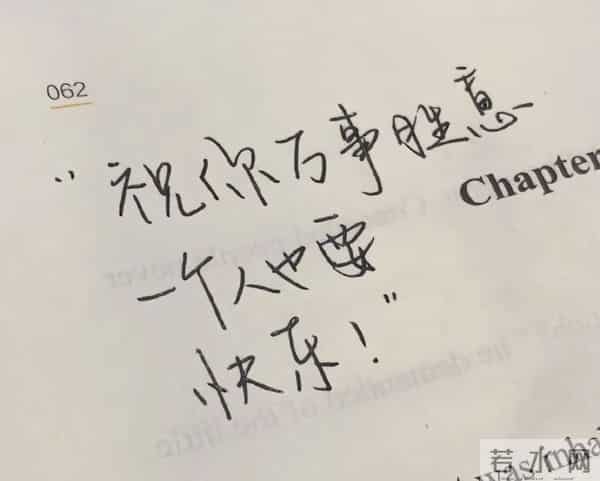 062
“祝你万事胜意
Chapter
一个人也要
快乐！”
was
若水网